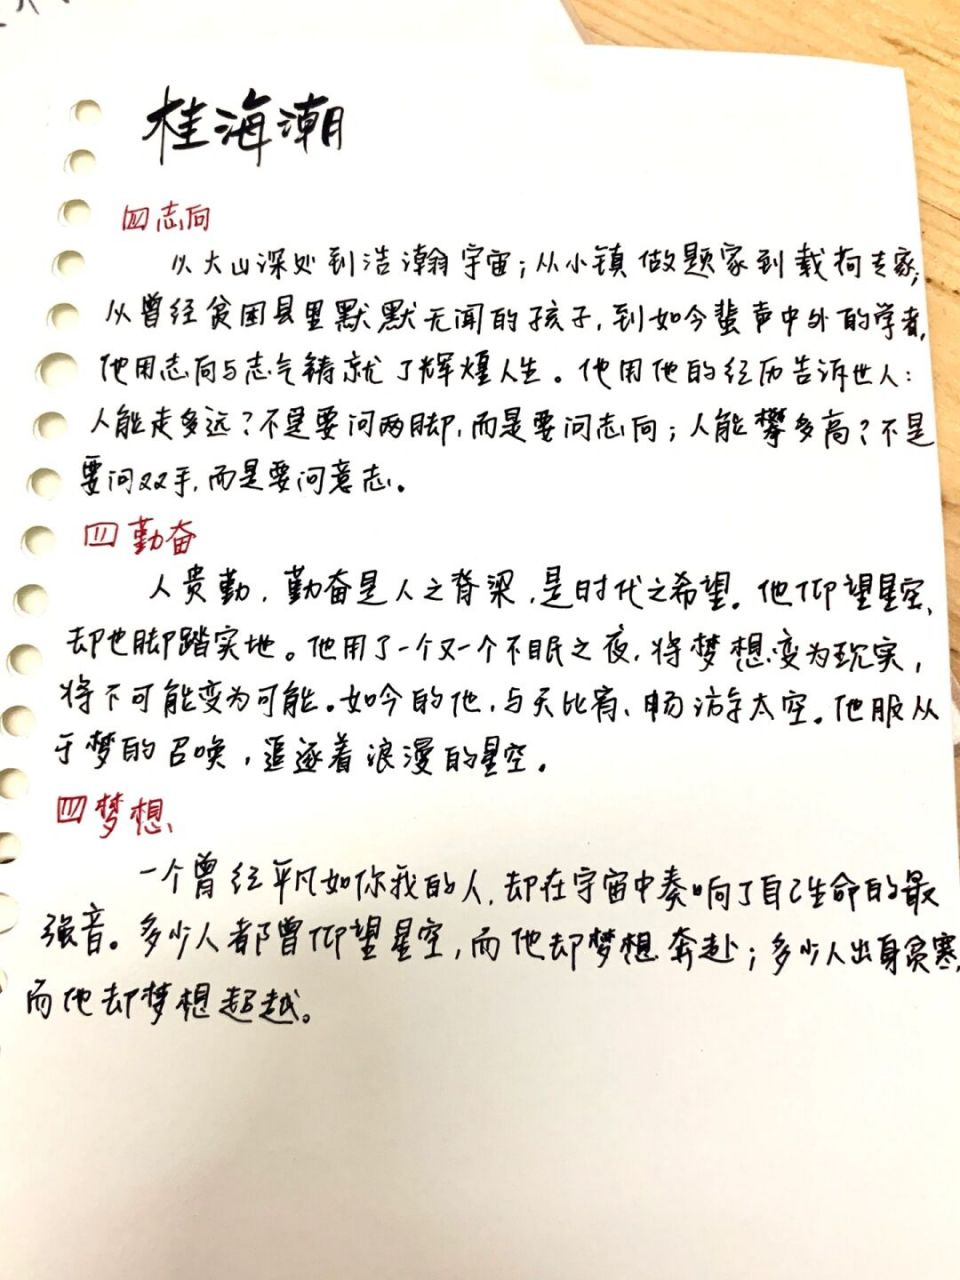 桂海潮
四志向
从大山深处到浩瀚宇宙；从小镇做题家到载荷专家；
从曾经贫困县里默默无闻的孩子，到如今蜚声中外的学者，
他用志向与志气铸就了辉煌人生。他用他的经历告诉世人：
人能走多远？不是要问两脚，而是要问志向；人能攀多高？不是
要问双手，而是要问意志。
四勤奋
人贵勤，勤奋是人之脊梁，是时代之希望。他仰望星空、
却也脚踏实地。他用了一个又一个不眠之夜，将梦想变为现实，
将不可能变为可能。如今的他，与天比肩、畅游太空。他服从
于梦的召唤，追逐着浪漫的星空。
四梦想
一个曾经平凡如你我的人，却在宇宙中奏响了自己生命的最
强音。多少人都曾仰望星空，而他却梦想奔赴；多少人出身贫寒，
而他却梦想超越。